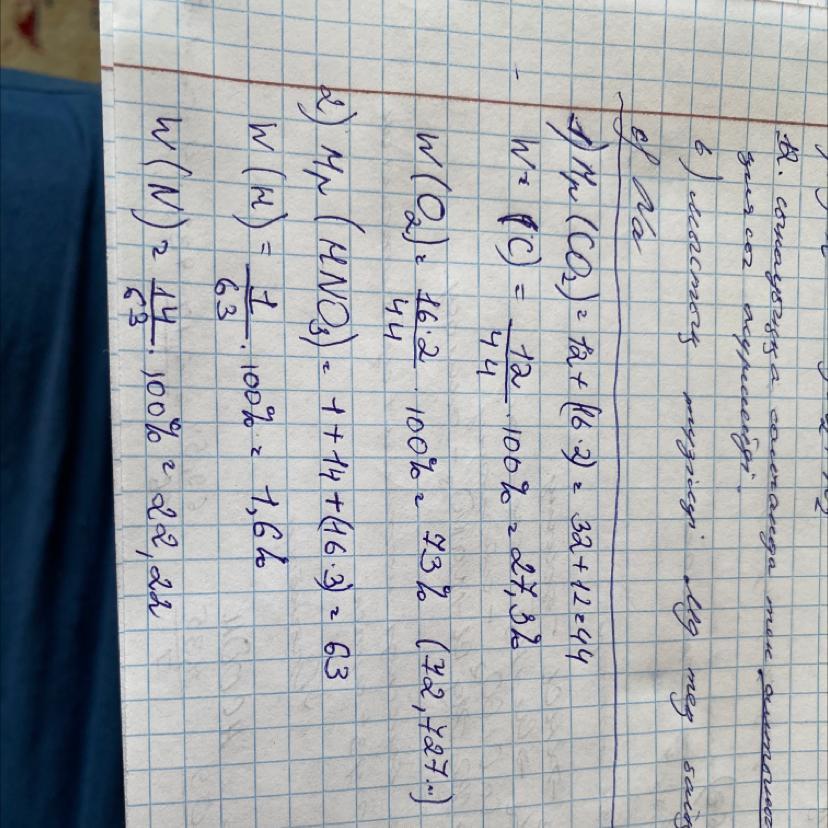 в) мастоғу түзілуі
с) Na
1) Mr (CO2) = 12 + (16·2) = 32 + 12 = 44
W = (C) = 12/44 · 100% = 27,3%
W (O2) = 16·2/44 · 100% = 73% (72,727...)
2) Mr (HNO3) = 1 + 14 + (16·3) = 63
W (H) = 1/63 · 100% = 1,6%
W (N) = 14/63 · 100% = 22,22